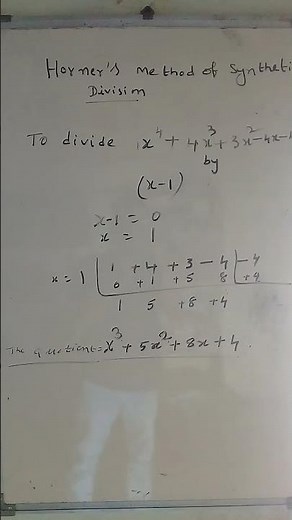 Horner's method of Syntheti
Division
To divide x⁴ + 4x³ + 3x² - 4x - 4
by
(x-1)
x-1 = 0
x = 1
x = 1 | 1 + 4 + 3 - 4 | - 4
0 + 1 + 5 8 | + 4
1 5 + 8 + 4
The quotient = x³ + 5x² + 8x + 4.